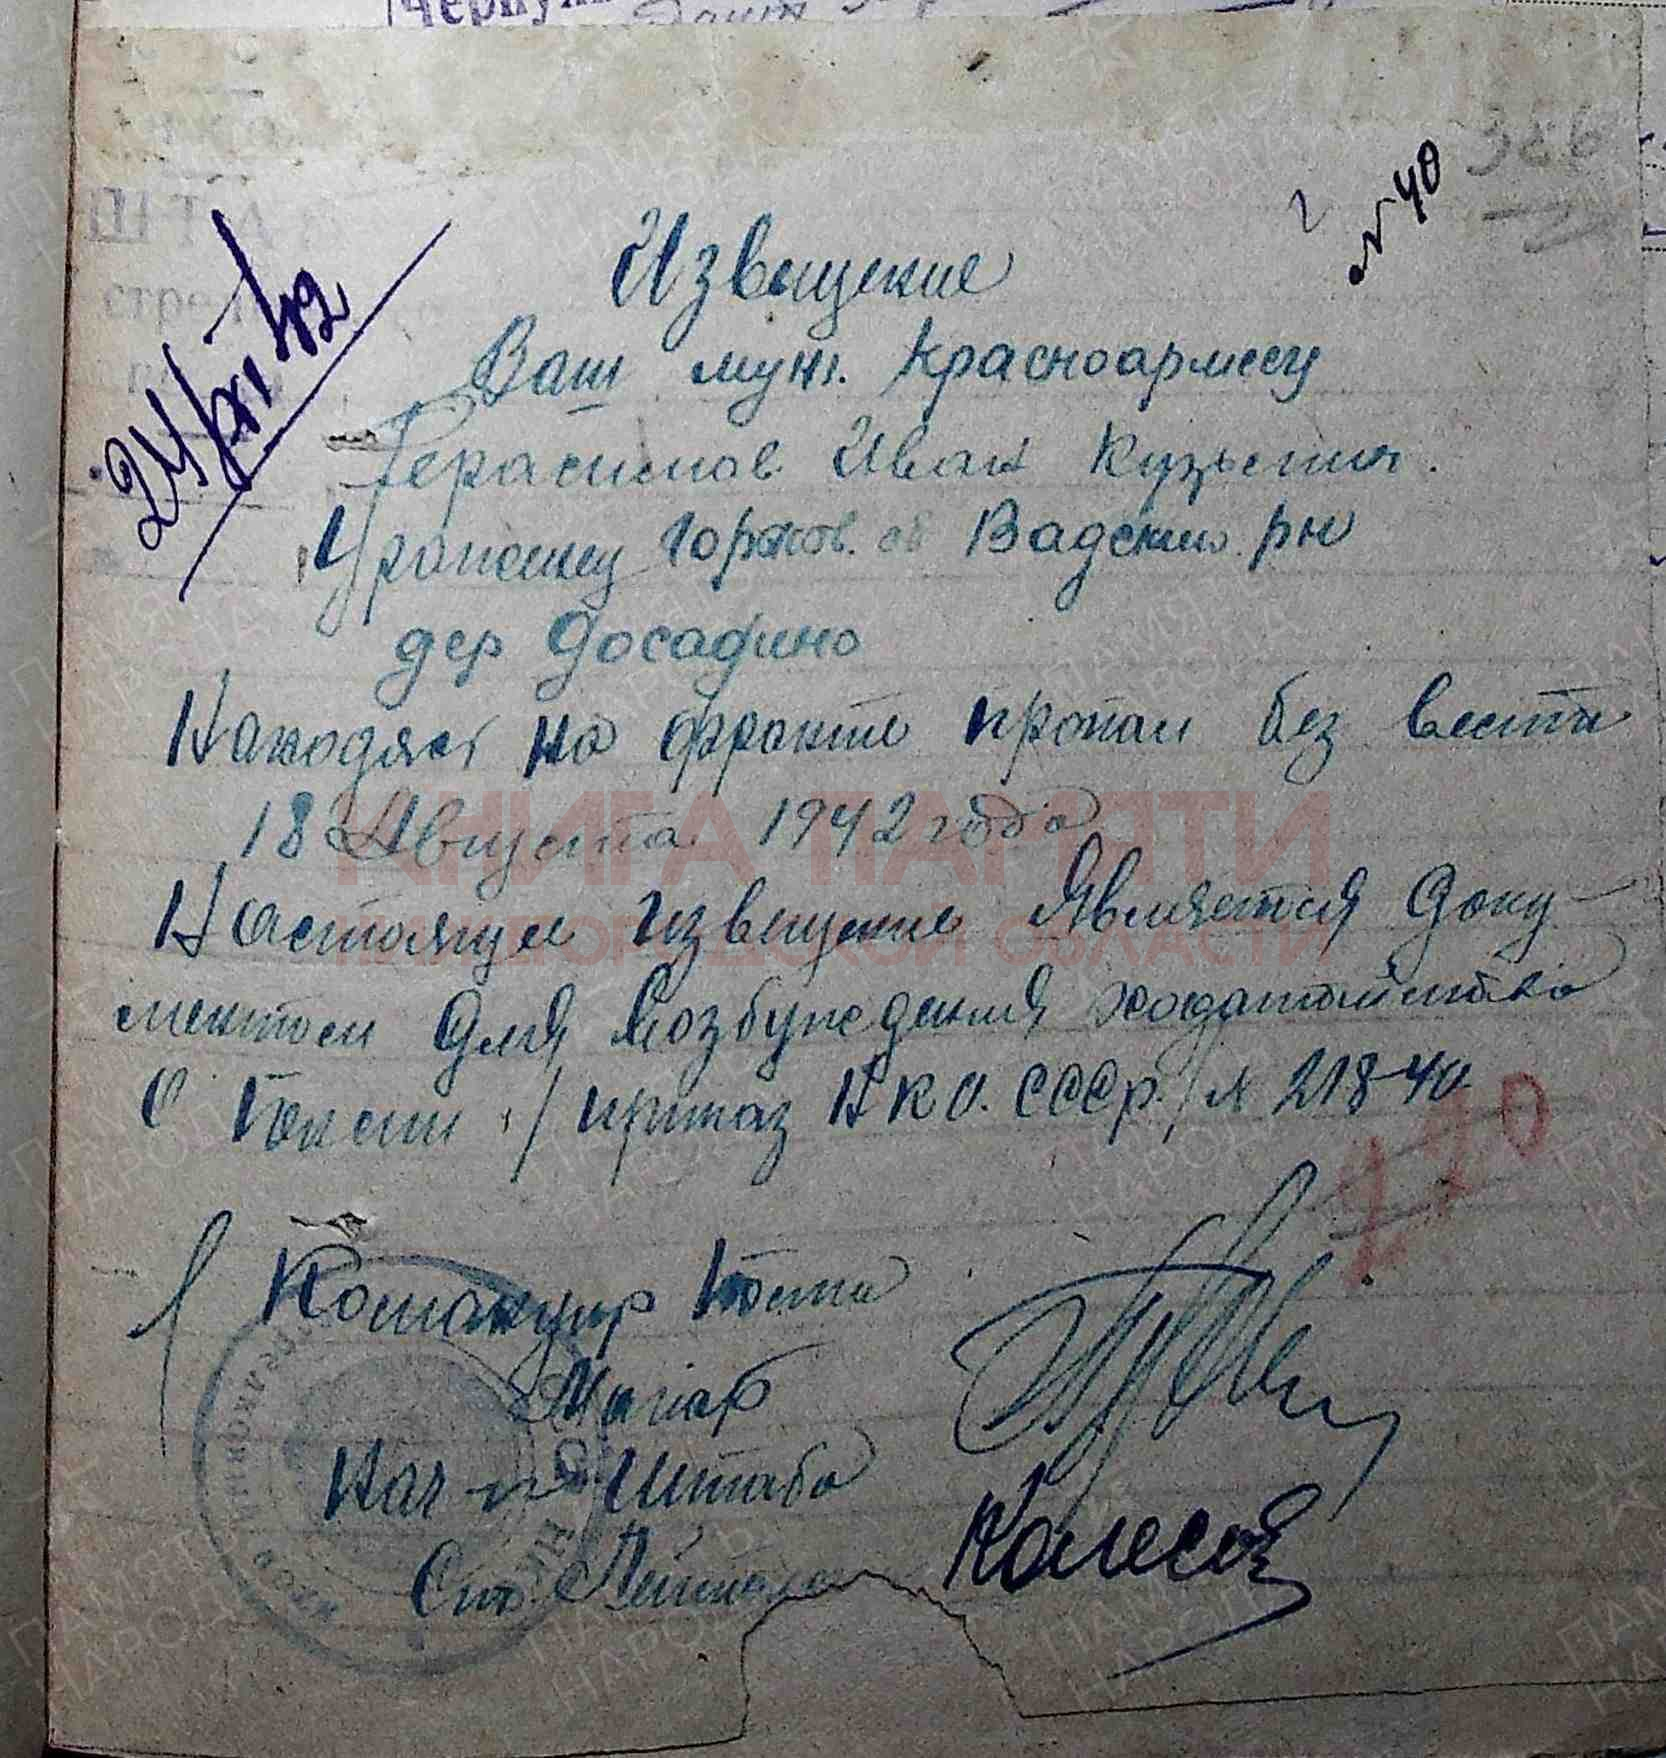 Черну
№ 40
326
Извещение
24/XI 42
Ваш муж. Красноармеец
Герасимов Иван Кузьмич.
Уроженец Горьков. об Вадского рн
дер Досадино
Находясь на фронте пропал без вести
18 Августа 1942 года
КНИГА ПАМЯТИ
НИЖЕГОРОДСКОЙ ОБЛАСТИ
Настоящее извещение является доку-
ментом для возбуждения ходатайства
о Пенсии /приказ НКО. СССР./ № 218-40
110
Командир Части
Маиор
Нач-к Штаба
Ст. Лейтенант
Колесов